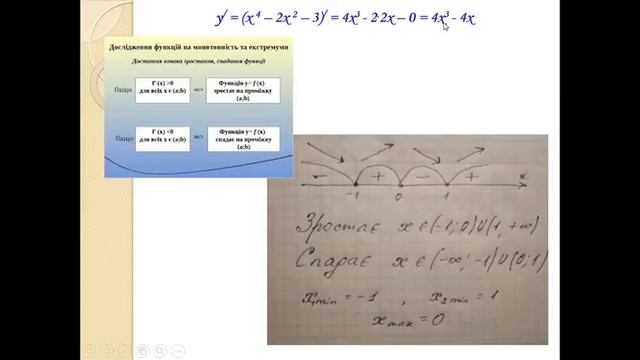 y′ = (x⁴ – 2x² – 3)′ = 4x³ - 2·2x – 0 = 4x³ - 4x
Дослідження функцій на монотонність та екстремуми
Достатня ознака зростання, спадання функції
Якщо
f' (x) >0
для всіх x є (a;b)
=>
Функція y= f (x)
зростає на проміжку
(a;b)
Якщо
f' (x) <0
для всіх x є (a;b)
=>
Функція y= f (x)
спадає на проміжку
(a;b)
- + - +
-1 0 1 x
Зростає x є (-1; 0) U (1, +∞)
Спадає x є (-∞; -1) U (0; 1)
x₁min = -1 , x₂min = 1
xmax = 0